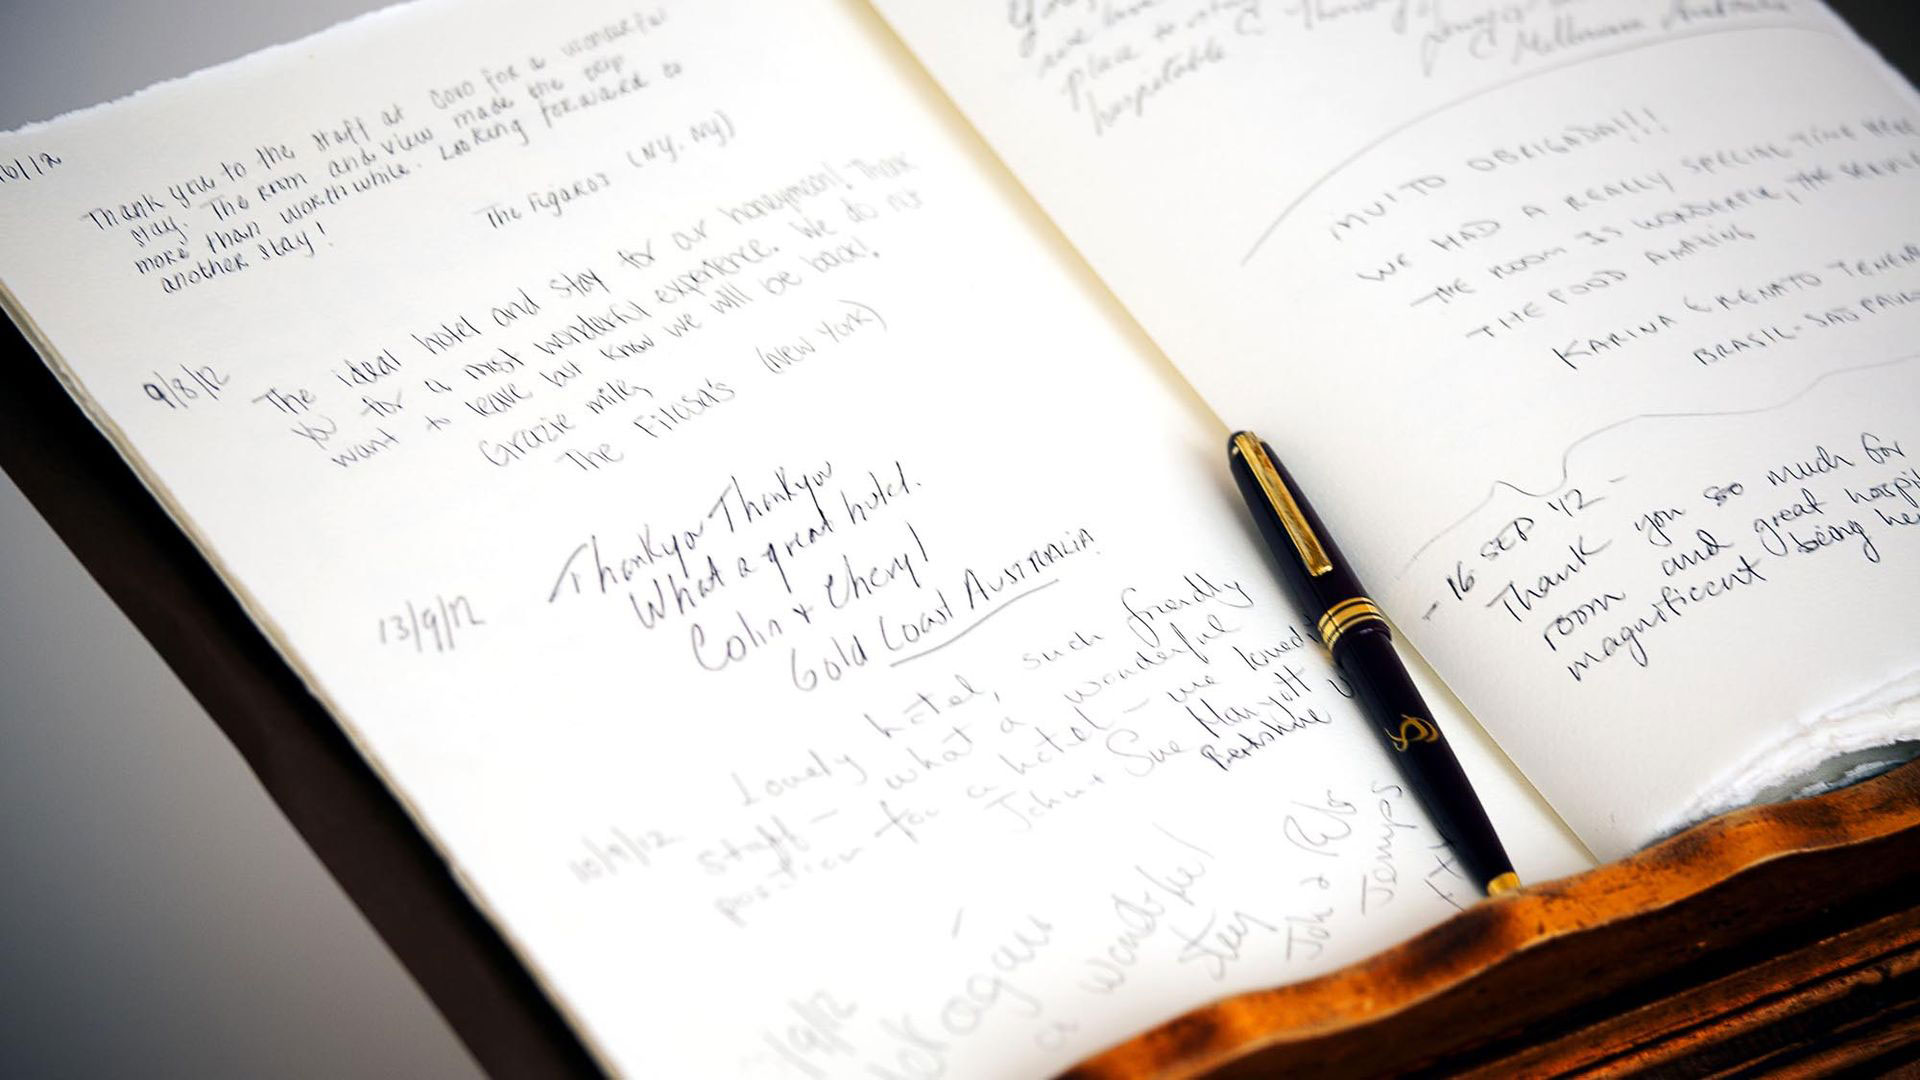 Thank you to the staff at Covo for a wonderful
stay. The room and view made the trip
more than worthwhile. Looking forward to
another stay!
The Figaros (NY, NY)
9/8/12
The ideal hotel and stay for our honeymoon! Thank
you for a most wonderful experience. We do not
want to leave but know we will be back!
Grazie mille,
The Filosa's (New York)
13/9/12
Thankyou Thankyou
What a great hotel.
Colin + Cheryl
Gold Coast AUSTRALIA
10/9/12
Lovely hotel, such friendly
staff - what a wonderful
position for a hotel - we loved
John + Sue Marryott
Berkshire
/9/12
a wonderful
stay
John &
Jemps
place to stay
hospitable
Melbourne Australia
MUITO OBRIGADA!!!
WE HAD A REALLY SPECIAL TIME HERE
THE ROOM IS WONDERFUL, THE SERVICE
THE FOOD AMAZING
KARINA & RENATO
BRASIL - SAO PAULO
- 16 SEP '12 -
Thank you so much for
room and great hospi
magnificent being he